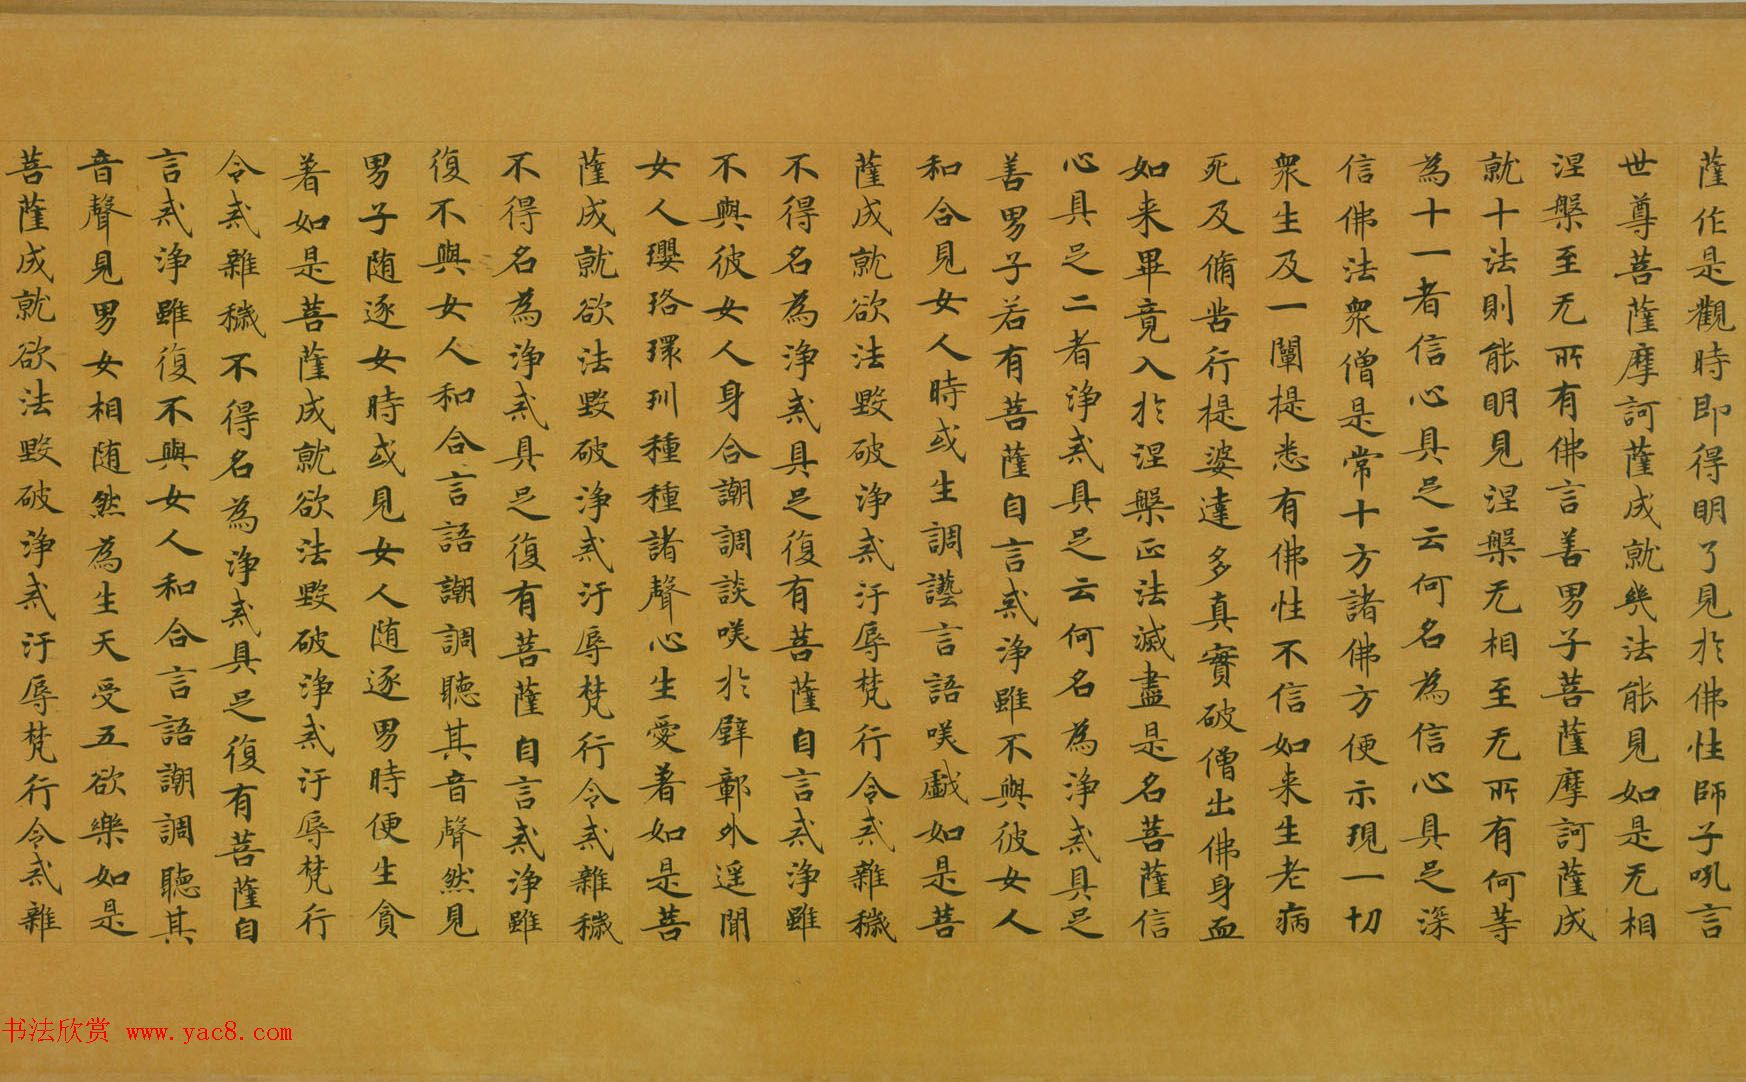 薩作是觀時即得明了見於佛性師子吼言
世尊菩薩摩訶薩成就幾法能見如是无相
涅槃至无所有佛言善男子菩薩摩訶薩成
就十法則能明見涅槃无相至无所有何等
為十一者信心具足云何名為信心具足深
信佛法衆僧是常十方諸佛方便示現一切
衆生及一闡提悉有佛性不信如来生老病
死及脩苦行提婆達多真實破僧出佛身血
如来畢竟入於涅槃正法滅盡是名菩薩信
心具足二者淨戒具足云何名為淨戒具足
善男子若有菩薩自言戒淨雖不與彼女人
和合見女人時或生調譺言語咲戲如是菩
薩成就欲法毀破淨戒汙辱梵行令戒雜穢
不得名為淨戒具足復有菩薩自言戒淨雖
不與彼女人身合謿調談咲於壁鄣外遥聞
女人瓔珞環玔種種諸聲心生愛著如是菩
薩成就欲法毀破淨戒汙辱梵行令戒雜穢
不得名為淨戒具足復有菩薩自言戒淨雖
復不與女人和合言語謿調聽其音聲然見
男子随逐女時或見女人随逐男時便生貪
著如是菩薩成就欲法毀破淨戒汙辱梵行
令戒雜穢不得名為淨戒具足復有菩薩自
言戒淨雖復不與女人和合言語謿調聽其
音聲見男女相随然為生天受五欲樂如是
菩薩成就欲法毀破淨戒汙辱梵行令戒雜
书法欣赏 www.yac8.com